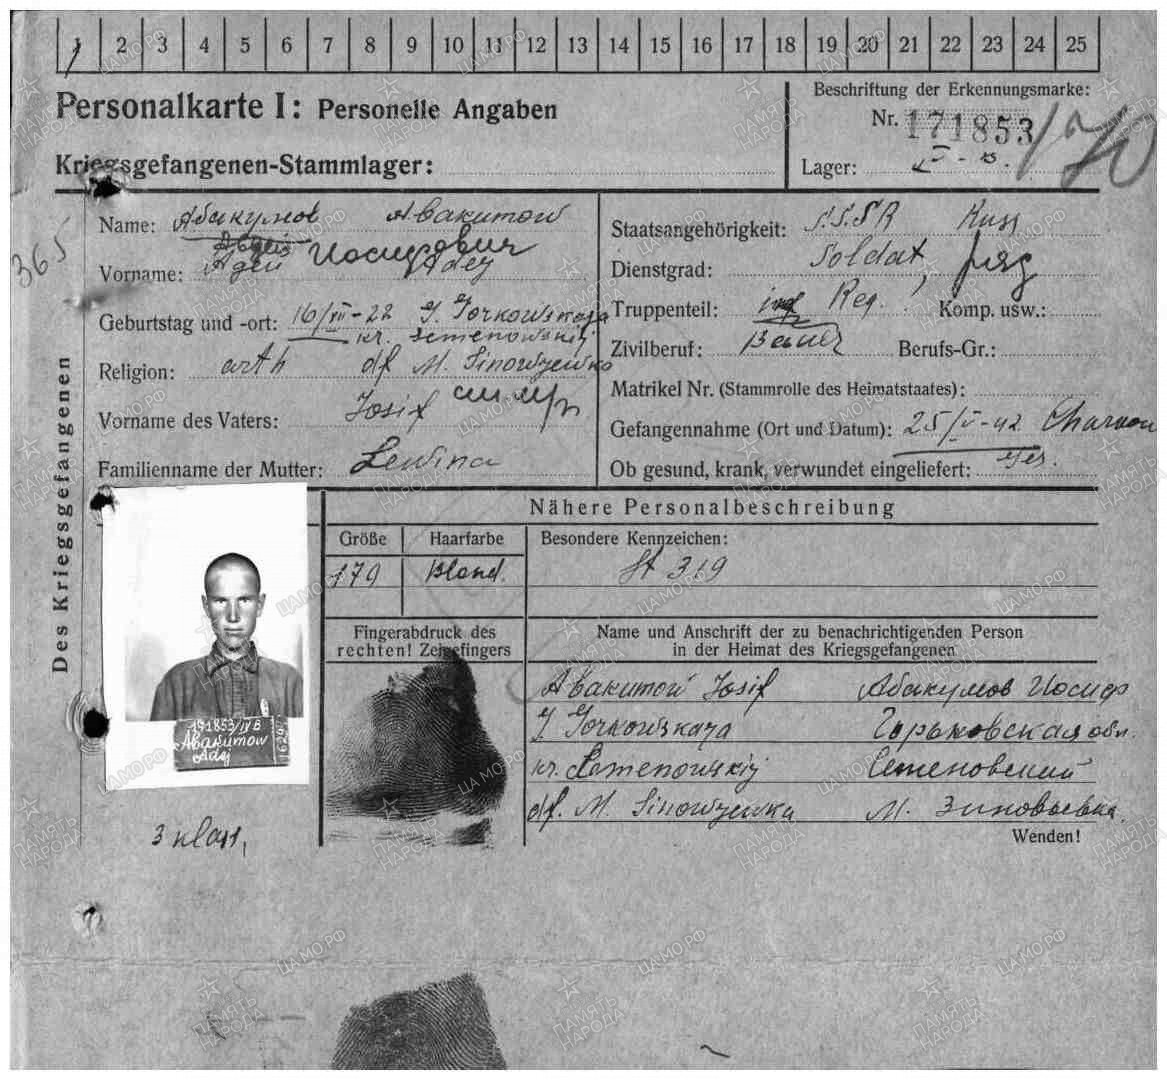 1 2 3 4 5 6 7 8 9 10 11 12 13 14 15 16 17 18 19 20 21 22 23 24 25
Personalkarte I: Personelle Angaben
Beschriftung der Erkennungsmarke:
Nr. 171853
Kriegsgefangenen-Stammlager:
Lager:
365
Des Kriegsgefangenen
Name: Абакумов Abakumow
Иосифович
Vorname: Адей Adej
Geburtstag und -ort: 16/VII-22 G. Gorkowskaja
kr. Semenowskij
Religion: orth df M. Sinowjewka
Vorname des Vaters: Josif
Familienname der Mutter: Lewina
Staatsangehörigkeit: S.S.S.R Russ
Dienstgrad: Soldat,
Truppenteil: inf Reg. Komp. usw.:
Zivilberuf: Bauer Berufs-Gr.:
Matrikel Nr. (Stammrolle des Heimatstaates):
Gefangennahme (Ort und Datum): 25/V-42 Charkow
Ob gesund, krank, verwundet eingeliefert: ges.
Nähere Personalbeschreibung
Größe Haarfarbe Besondere Kennzeichen:
179 Blond. St 319
Fingerabdruck des
rechten! Zeigefingers
Name und Anschrift der zu benachrichtigenden Person
in der Heimat des Kriegsgefangenen
Abakumow Josif Абакумов Иосиф
G Gorkowskaja Горьковская обл.
kr. Semenowskij Семеновский
df. M. Sinowjewka М. Зиновьевка.
Wenden!
171853/IV B
Abakumow
Adej
3 клас,
ПАМЯТЬ НАРОДА
ЦАМО.РФ